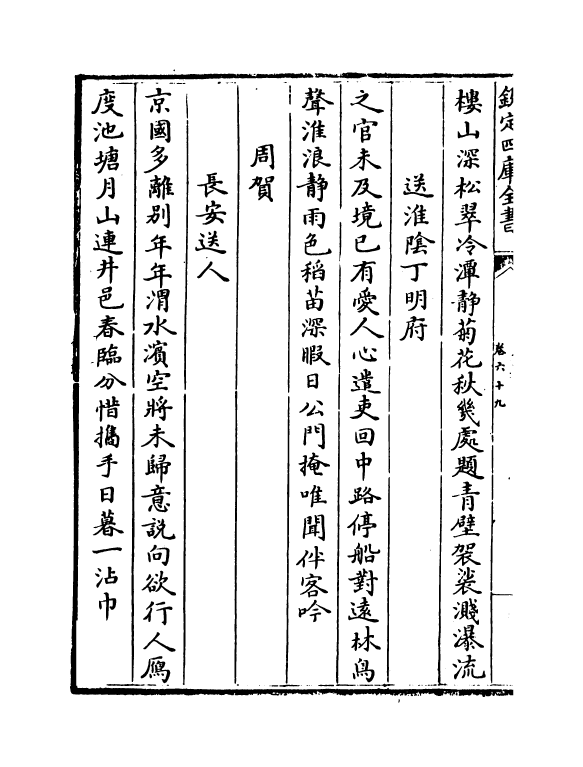 欽定四庫全書
卷六十九
樓山深松翠冷潭靜菊花秋幾處題青壁袈裟濺瀑流
送淮陰丁明府
之官未及境已有愛人心遣吏回中路停船對遠林鳥
聲淮浪靜雨色稻苗深暇日公門掩唯聞伴客吟
周賀
長安送人
京國多離別年年渭水濱空將未歸意說向欲行人鴈
度池塘月山連井邑春臨分惜攜手日暮一沾巾